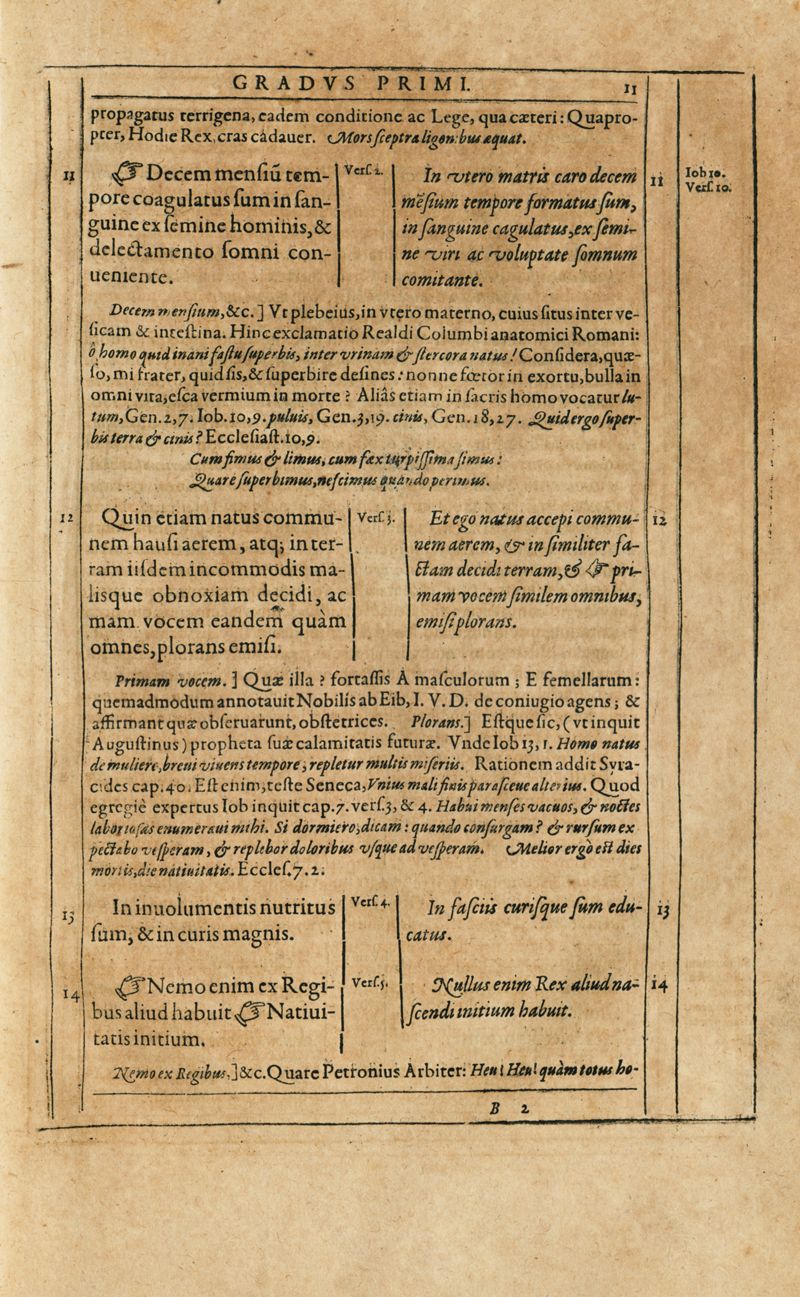 GRADVS PRIMI. 11
propagatus terrigena, eadem conditione ac Lege, qua cæteri: Quapro-
pter, Hodie Rex, cras cadauer. Mors sceptra ligonibus æquat.
11
☞ Decem mensiũ tem-
pore coagulatus sum in san-
guine ex semine hominis, &
delectamento somni con-
ueniente.
Vers. 2.
In vtero matris caro decem
mẽsium tempore formatus sum,
in sanguine cagulatus, ex semi-
ne viri ac voluptate somnum
comitante.
11
Iob 10.
Vers. 10.
Decem mensium, &c. ] Vt plebeius, in vtero materno, cuius situs inter ve-
sicam & intestina. Hinc exclamatio Realdi Columbi anatomici Romani:
ô homo quid inani fastu superbis, inter vrinam & stercora natus! Considera, quæ-
so, mi frater, quid sis, & superbire desines: nonne fœtor in exortu, bulla in
omni vita, esca vermium in morte? Aliâs etiam in sacris homo vocatur lu-
tum, Gen. 2, 7. Iob. 10, 9. puluis, Gen. 3, 19. cinis, Gen. 18, 27. Quid ergo super-
bis terra & cinis? Ecclesiast. 10, 9.
Cum fimus & limus, cum fæx turpissima simus:
Quare superbimus, nescimus quando perimus.
12
Quin etiam natus commu-
nem hausi aerem, atq; in ter-
ram iisdem incommodis ma-
lisque obnoxiam decidi, ac
mam vocem eandem quàm
omnes, plorans emisi.
Vers. 3.
Et ego natus accepi commu-
nem aerem, & in similiter fa-
ctam decidi terram, & ☞ pri-
mam vocem similem omnibus,
emisi plorans.
12
Primam vocem. ] Quæ illa? fortassis A masculorum; E femellarum:
quemadmodum annotauit Nobilis ab Eib, I. V. D. de coniugio agens; &
affirmant quæ obseruarunt, obstetrices. Plorans.] Estque sic, (vt inquit
Augustinus) propheta suæ calamitatis futuræ. Vnde Iob 13, 1. Homo natus
de muliere, breui viuens tempore, repletur multis miseriis. Rationem addit Syra-
cides cap. 40. Est enim, teste Seneca, Vnius mali finis paras ceue alterius. Quod
egregiè expertus Iob inquit cap. 7. vers. 3, & 4. Habui menses vacuos, & noctes
laboriosas enumeraui mihi. Si dormiero, dicam: quando consurgam? & rursum ex
pectabo vesperam, & replebor doloribus vsque ad vesperam. Melior ergo est dies
mortis, die natiuitatis. Eccles. 7. 2.
13
In inuolumentis nutritus
sum, & in curis magnis.
Vers. 4.
In fasciis curisque sum edu-
catus.
13
14
☞ Nemo enim ex Regi-
bus aliud habuit ☞ Natiui-
tatis initium.
Vers. 5.
Nullus enim Rex aliud na-
scendi initium habuit.
14
Nemo ex Regibus,] &c. Quare Petronius Arbiter: Heu! Heu! quàm totus ho-
B 2